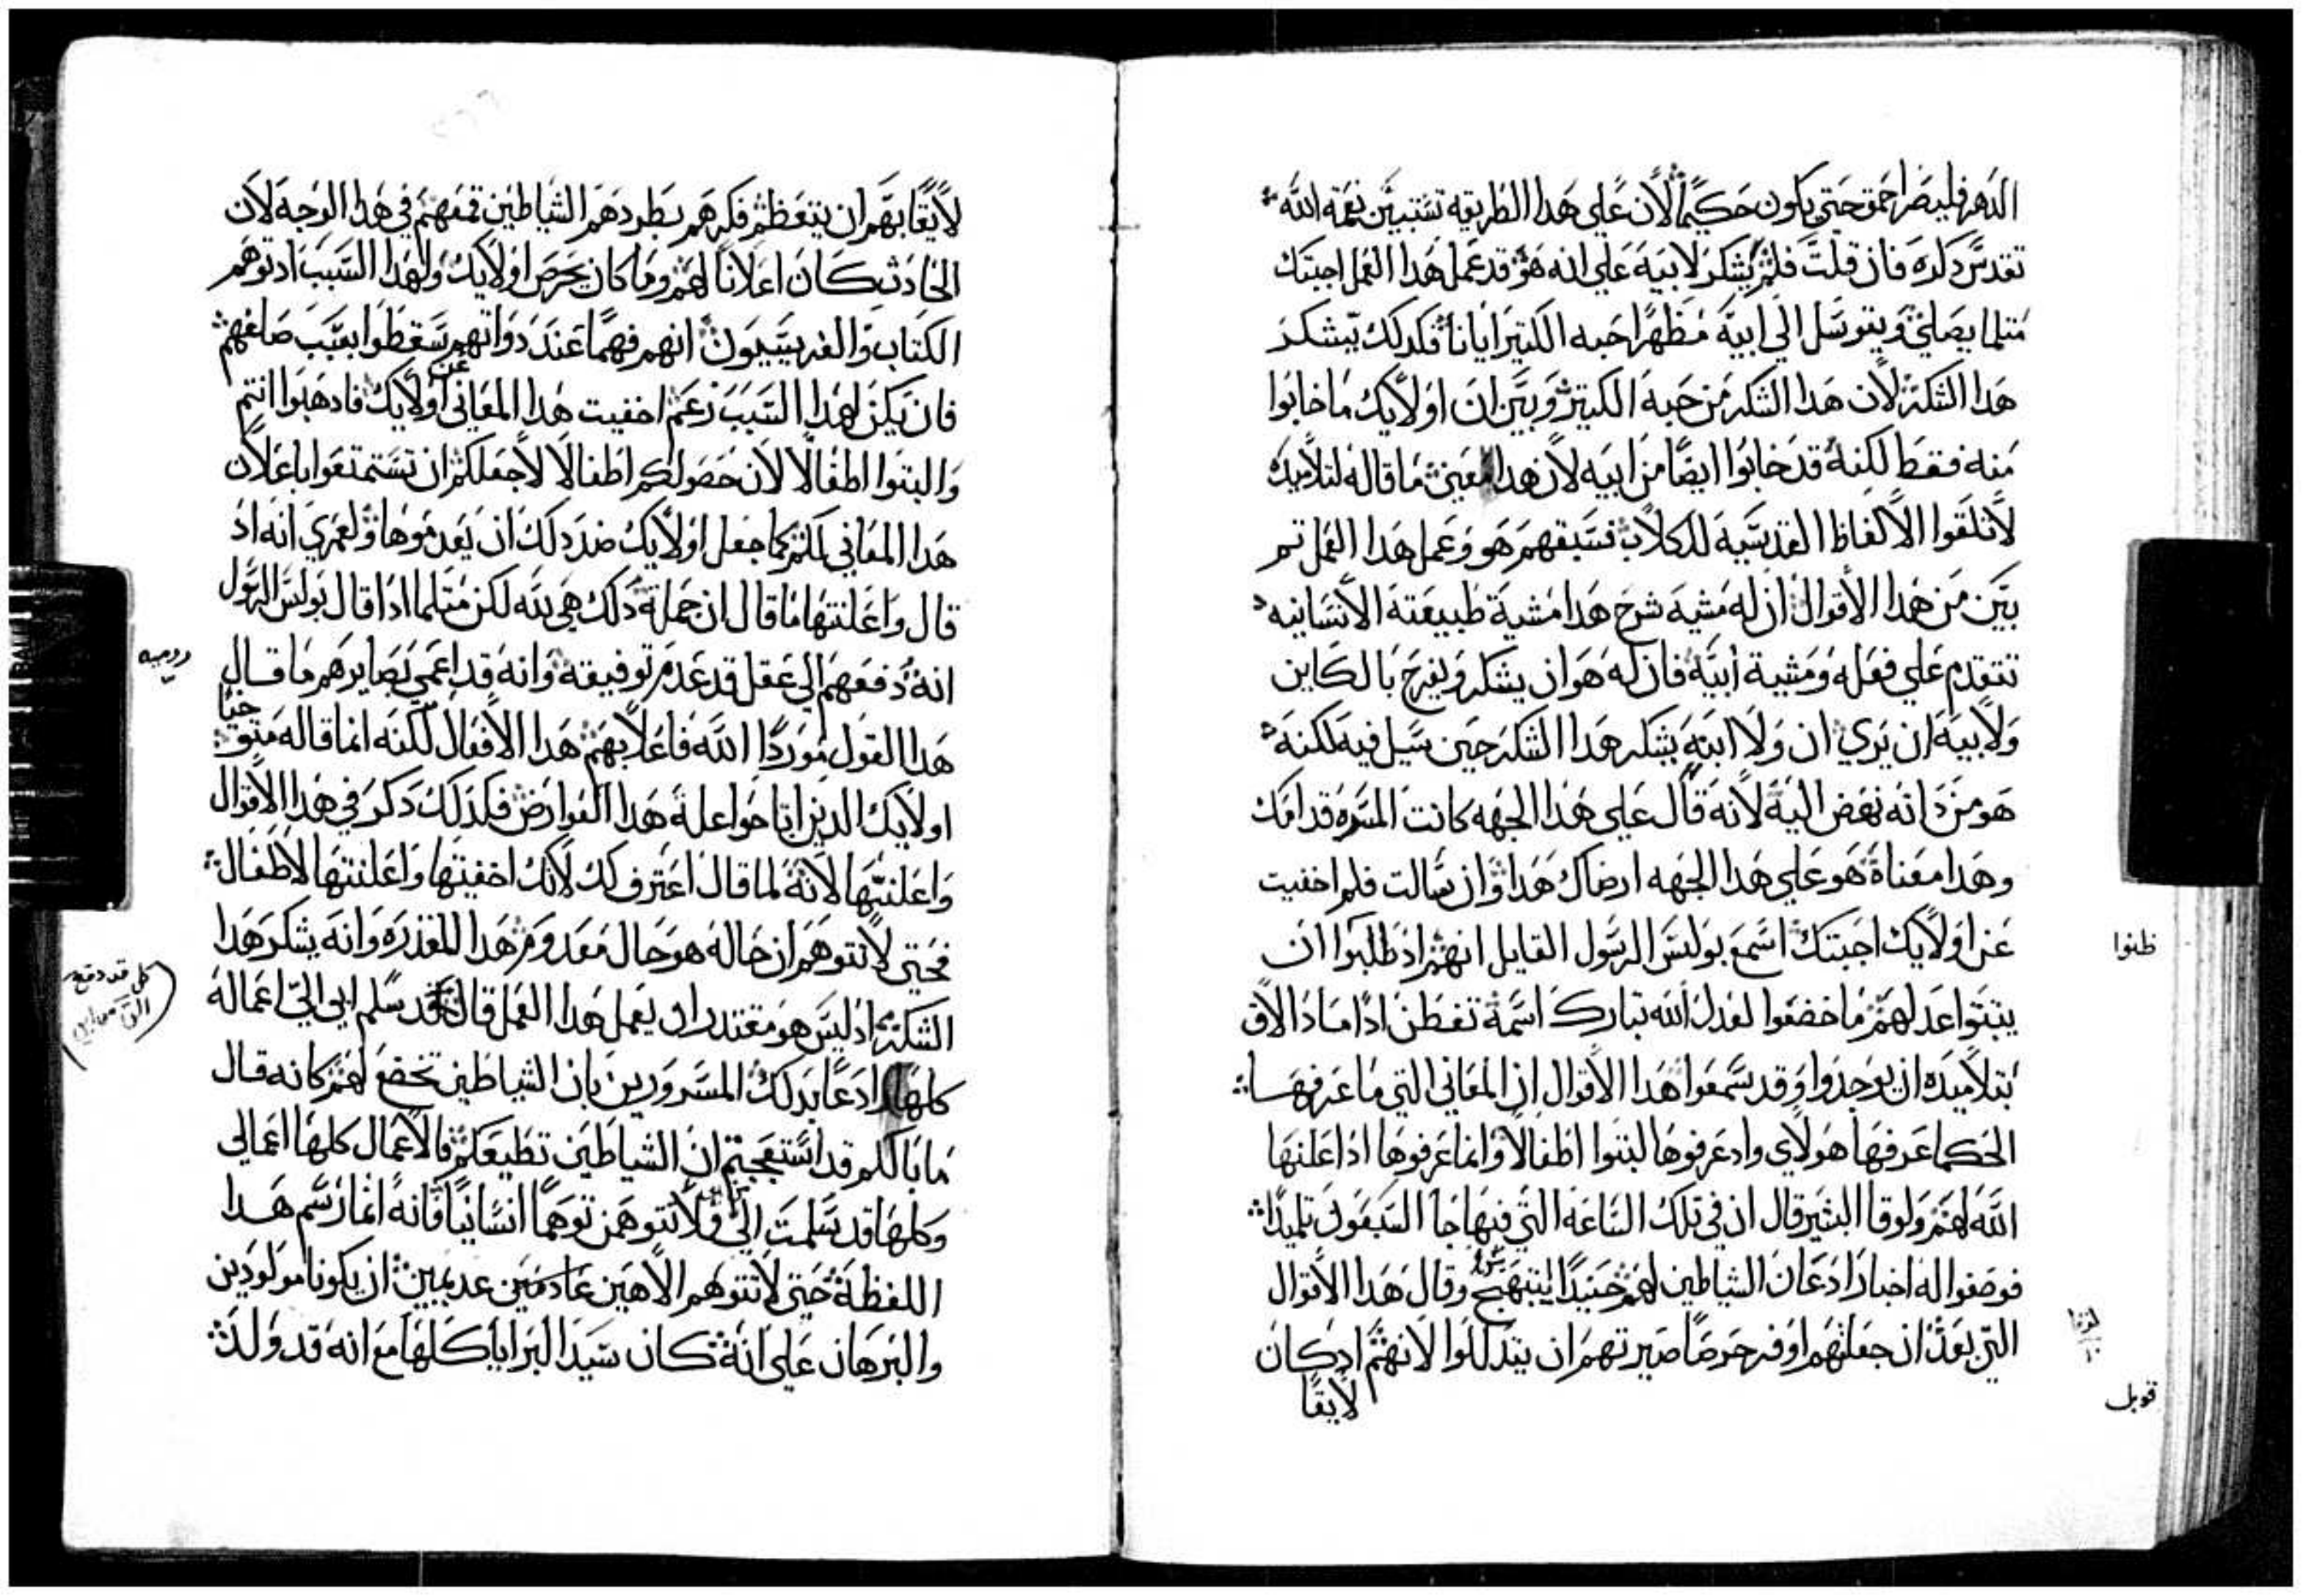 الدهر فليصر احمق حتي يكون حكيمًا لان علي هدا الطريقه تستبين نعمة الله
تقدس دكره فان قلت فلم يشكر لابيه علي انه هو قد عمل هدا العمل اجبتك
متلما يصلي ويتوسل الي ابيه مظهرًا حبه الكتير ايانا فكدلك يشكر
هدا الشكر لان هدا الشكر من حبه الكتير وبين ان اولايك ما خابوا
منه فقط لكنه قد خابوا ايضًا من ابيه لان هدا معني ما قاله لتلاميده
لا تلقوا الالفاظ القدسيه للكلاب فسبقهم هو وعمل هدا العمل تم
بين من هدا الاقوال ان له مشيه شرح هدا مشية طبيعته الانسانيه
تتقدم علي فعله ومشية ابيه فان له هو ان يشكر ويفرح بالكاين
ولابيه ان يري ان ولا ابنه يشكر هدا الشكر حين سيل فيه لكنه
هو من داته نهض اليه لانه قال علي هدا الجهه كانت المسره قدامك
وهدا معناه هو علي هدا الجهه ارضاك هدا وان سالت فلم اخفيت
عن اولايك اجبتك اسمع بولس الرسول القايل انهم اد طلبوا ان
ظنوا
يتبتوا عدلهم ما خضعوا لعدل الله تبارك اسمه تفطن ادًا مادا الاق
بتلاميده ان يوجدوا وقد سمعوا هدا الاقوال ان المعاني التي ما عرفها
الحكما عرفها هولاي واد عرفوها لبتوا اطفالًا وانما عرفوها اد اعلنها
الله لهم ولوقا البشير قال ان في تلك الساعه التي فيها جا السبعون تلميدًا
فوصفوا له اخبار ادعان الشياطين لهم حنيدًا ابتهج وقال هدا الاقوال
التي بعد ان جعلتهم اوفر حرصًا صيرتهم ان يتدللوا لانهم اد كان
لايقًا
قوبل
لايقًا بهم ان يتعظم فكرهم بطردهم الشياطين قمعهم في هدا الوجه لان
الحادت كان اعلانًا لهم وما كان بحرص اولايك ولهدا السبب اد توهم
الكتاب والفريسيون انهم فهما عند دواتهم سقطوا بسبب صلفهم
فان يكن لهدا السبب زعم اخفيت هدا المعاني عن اولايك فادهبوا انتم
والبتوا اطفالًا لان حصولكم اطفالا لاجعلكم ان تستمتعوا باعلان
هدا المعاني لكم كما جعل اولايك ضد دلك ان يعدموها ولعمري انه اد
قال واعلنتها ما قال ان جملة دلك هي بته لكن متلما ادا قال بولس الرسول
انه دفعهم الي عقل قد عدم توفيقه وانه قد اعمي بصايرهم ما قال
روميه
هدا القول موردًا الله فاعلًا بهم هدا الافعال لكنه انما قاله متوجبًا
اولايك الدين اتاحوا علة هدا العوارض فكدلك دكر في هدا الاقوال
واعلنتها لانه لما قال اعترف لك لانك اخفيتها واعلنتها لاطفال
فحتي لا تتوهم ان حاله هو حال معدوم هدا المقدره وانه يشكر هدا
الشكر اد ليس هو مقتدر ان يعمل هدا العمل قال قد سلم ابي الي اعماله
كل قد دفع الي من ابي
كلها ادعا بدلك المسرورين بان الشياطين تخضع لهم كانه قال
ما بالكم قد استعجبتم ان الشياطين تطيعكم فالاعمال كلها اعمالي
وكلها قد سلمت الي فلا تتوهمن توهمًا انسانيًا فانه انما رسم هدا
اللفظه حتي لا تتوهم الاهين عادمين عديمين ان يكونا مولودين
والبرهان علي انه كان سيد البرايا كلها مع انه قد ولد